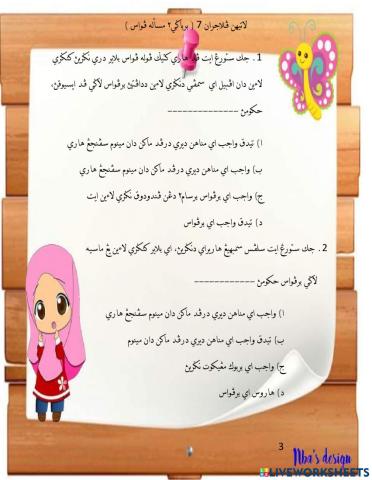 لاتيهن ڤلاجران 7 ( برباݢي٢ مسأله ڤواس )
1 . جك سئورڠ ايت ڤد هاري كتيݢ ڤوله ڤواس بلاير دري نݢرين كنݢري
لاءين دان اڤبيل اي سمڤاي دنݢري لاءين ددافتين برڤواس لاݢي ڤد ايسوقن،
حكومن --------------
ا) تيدق واجب اي مناهن ديري درڤد ماكن دان مينوم سڤنجڠ هاري
ب) واجب اي مناهن ديري درڤد ماكن دان مينوم سڤنجڠ هاري
ج) واجب اي برڤواس برسام٢ دڠن ڤندودوق نݢري لاءين ايت
د) تيدق واجب اي برڤواس
2 . جك سئورڠ ايت سلڤس سمبهيڠ هاريراي دنݢرين، اي بلاير كنݢري لاءين يڠ ماسيه
لاݢي برڤواس حكومن ------------
ا) واجب اي مناهن ديري درڤد ماكن دان مينوم سڤنجڠ هاري
ب) تيدق واجب اي مناهن ديري درڤد ماكن دان مينوم
ج) واجب اي بربوك مڠيكوت نݢرين
د) هاروس اي برڤواس
3
Nba's design
LIVEWORKSHEETS